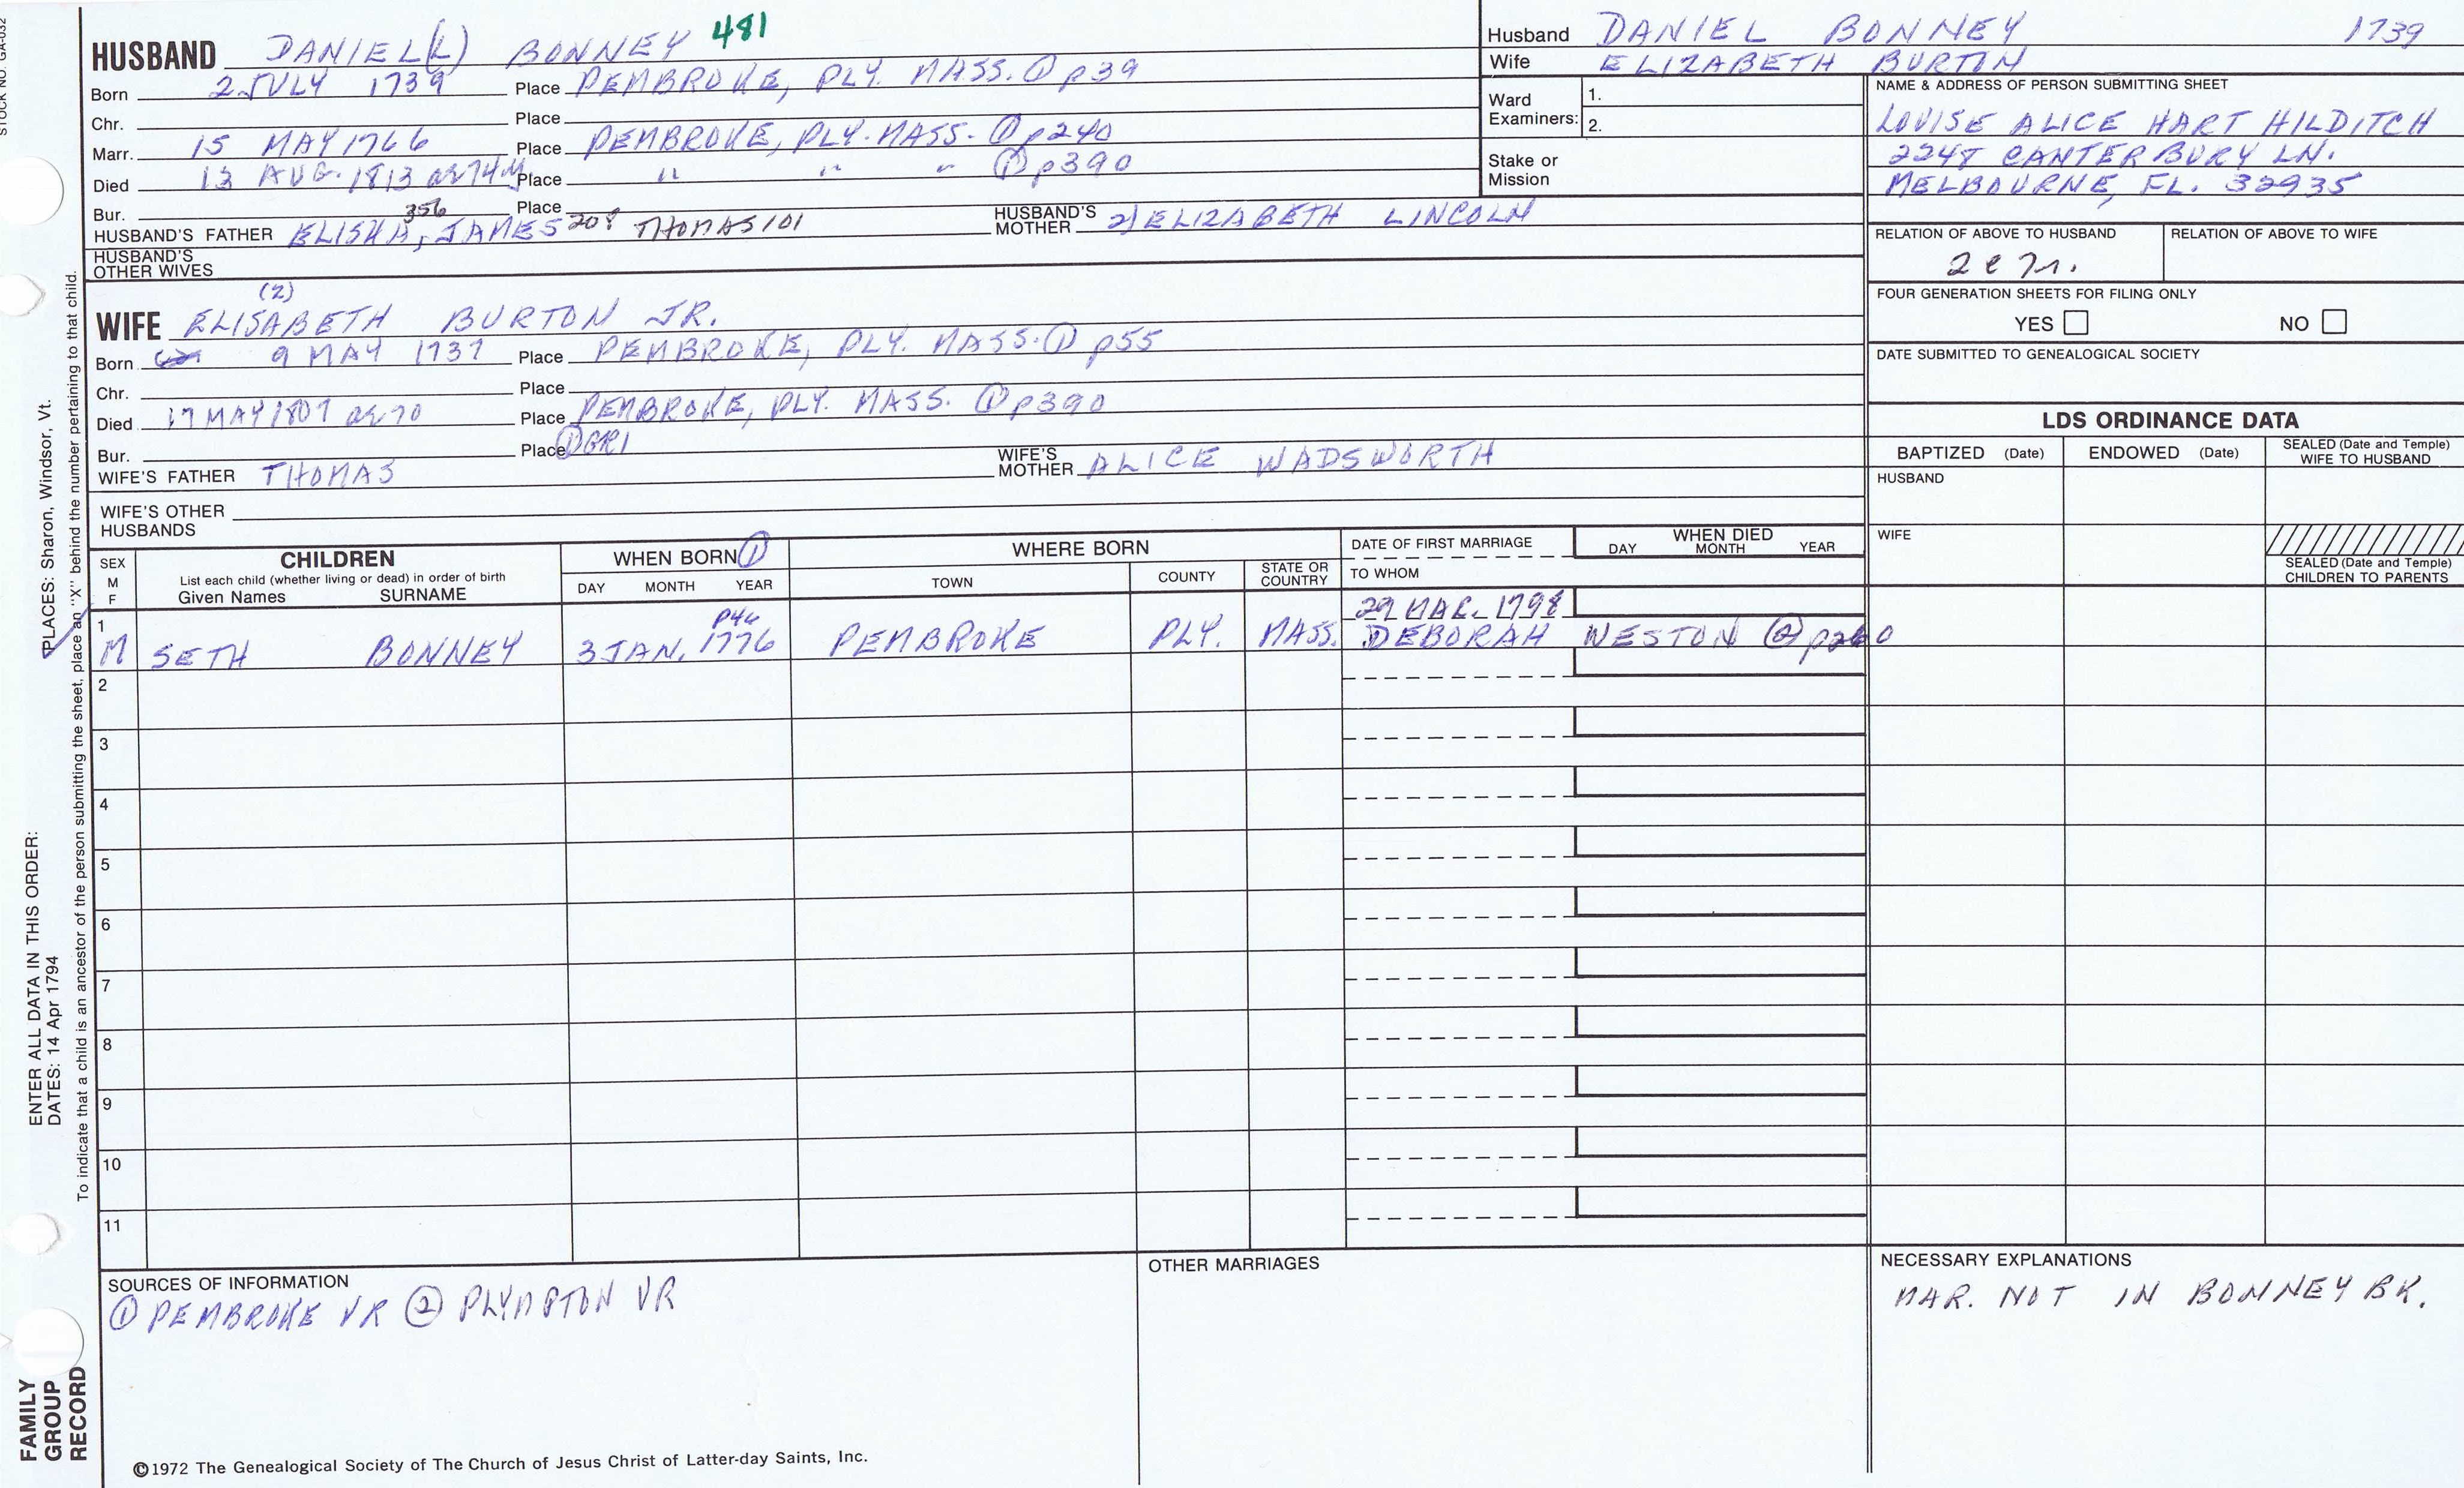 STOCK NO. GA-032
HUSBAND DANIEL(L) BONNEY 481
Born 2 JULY 1739 Place PEMBROKE, PLY. MASS. ① p39
Chr. Place
Marr. 15 MAY 1766 Place PEMBROKE, PLY. MASS. ① p240
Died 13 AUG. 1813 ae 74y Place " " " ① p390
Bur. Place
HUSBAND'S FATHER ELISHA, 356 JAMES 208 THOMAS 101 HUSBAND'S MOTHER 2) ELIZABETH LINCOLN
HUSBAND'S OTHER WIVES
(2)
WIFE ELISABETH BURTON JR.
Born 9 MAY 1737 Place PEMBROKE, PLY. MASS. ① p55
Chr. Place
Died 17 MAY 1807 ae 70 Place PEMBROKE, PLY. MASS. ① p390
Bur. Place ① GR1
WIFE'S FATHER THOMAS WIFE'S MOTHER ALICE WADSWORTH
WIFE'S OTHER HUSBANDS
Husband DANIEL BONNEY 1739
Wife ELIZABETH BURTON
Ward Examiners: 1.
2.
Stake or Mission
NAME & ADDRESS OF PERSON SUBMITTING SHEET
LOUISE ALICE HART HILDITCH
2248 CANTERBURY LN.
MELBOURNE, FL. 32935
RELATION OF ABOVE TO HUSBAND RELATION OF ABOVE TO WIFE
FOUR GENERATION SHEETS FOR FILING ONLY
YES NO
DATE SUBMITTED TO GENEALOGICAL SOCIETY
LDS ORDINANCE DATA
BAPTIZED (Date) ENDOWED (Date) SEALED (Date and Temple) WIFE TO HUSBAND
HUSBAND
WIFE
SEALED (Date and Temple) CHILDREN TO PARENTS
SEX M F
CHILDREN
List each child (whether living or dead) in order of birth
Given Names SURNAME
WHEN BORN ①
DAY MONTH YEAR
WHERE BORN
TOWN COUNTY STATE OR COUNTRY
DATE OF FIRST MARRIAGE
TO WHOM
WHEN DIED
DAY MONTH YEAR
1 P46 29 MAR. 1798
M SETH BONNEY 3 JAN. 1776 PEMBROKE PLY. MASS. DEBORAH WESTON ②
2
3
4
5
6
7
8
9
10
11
SOURCES OF INFORMATION
① PEMBROKE VR ② PLYMPTON VR
OTHER MARRIAGES
NECESSARY EXPLANATIONS
MAR. NOT IN BONNEY BK.
©1972 The Genealogical Society of The Church of Jesus Christ of Latter-day Saints, Inc.
FAMILY GROUP RECORD
ENTER ALL DATA IN THIS ORDER:
DATES: 14 Apr 1794
PLACES: Sharon, Windsor, Vt.
To indicate that a child is an ancestor of the person submitting the sheet, place an "X" behind the number pertaining to that child.